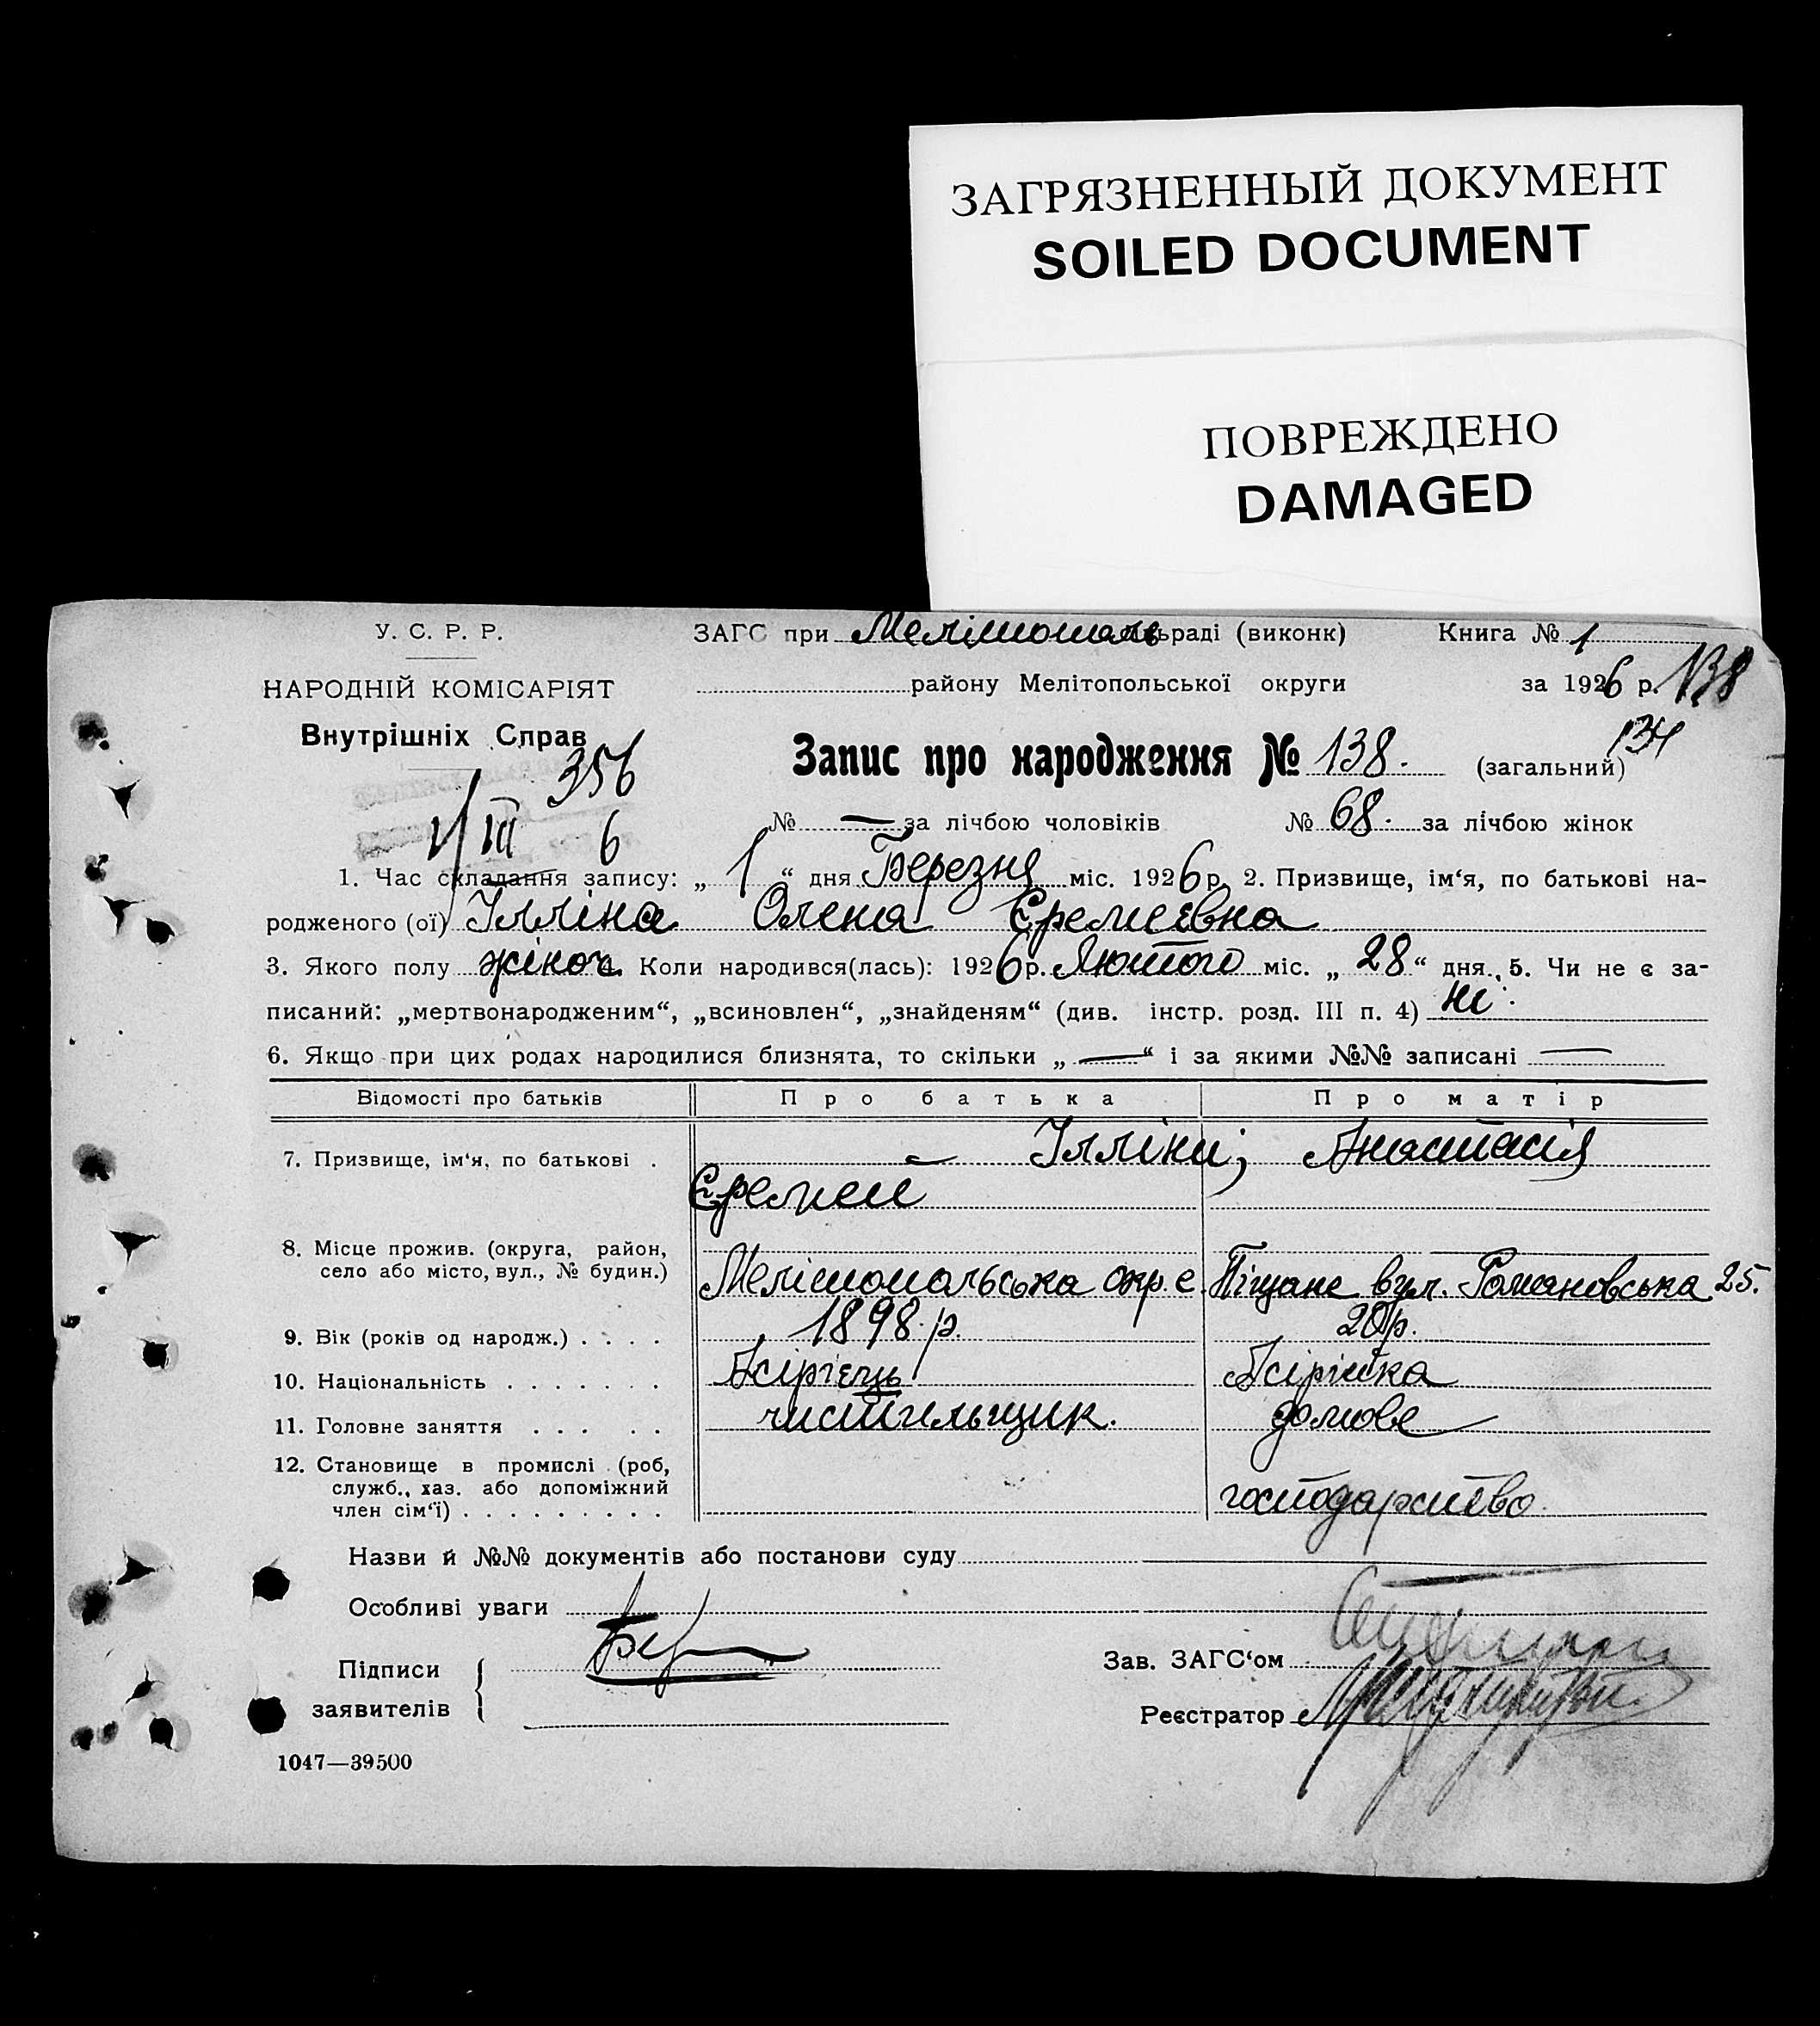 ЗАГРЯЗНЕННЫЙ ДОКУМЕНТ
SOILED DOCUMENT
ПОВРЕЖДЕНО
DAMAGED
У. С. Р. Р. ЗАГС при Мелітополь ьраді (виконк) Книга № 1
НАРОДНІЙ КОМІСАРІЯТ района Мелітопольської округи за 1926 р. 138
Внутрішніх Справ
356 Запис про народження № 138. (загальний) 134
1/III 6 № — за лічбою чоловіків № 68. за лічбою жінок
1. Час складання запису: „ 1 “ дня Березня міс. 1926 р. 2. Призвище, ім‘я, по батькові на-
родженого (ої) Ілліна Олена Єремеєвна
3. Якого полу жіноч. 4. Коли народився(лась): 1926 р. Лютого міс. „ 28 “ дня. 5. Чи не є за-
писаний: „мертвонародженим“, „всиновлен“, „знайденям“ (див. інстр. розд. III п. 4) ні.
6. Якщо при цих родах народилися близнята, то скільки „ — “ і за якими №№ записані —
Відомості про батьків Про батька Про матір
7. Призвище, ім‘я, по батькові . Ілліни; Анастасія
Єремей
8. Місце прожив. (округа, район,
село або місто, вул., № будин.) Мелітопольська окр. с. Піщане вул. Романовська 25.
9. Вік (років од народж.) . . . . 1898 р. 20 р.
10. Національність . . . . . . . Асірієць Асірійка
11. Головне заняття . . . . . чистильщик. домове
12. Становище в промислі (роб,
служб., хаз. або допоміжний господарство.
член сім‘ї) . . . . . . . . .
Назви й №№ документів або постанови суду
Особливі уваги
Підписи Зав. ЗАГС‘ом
заявителів Реєстратор
1047—39500